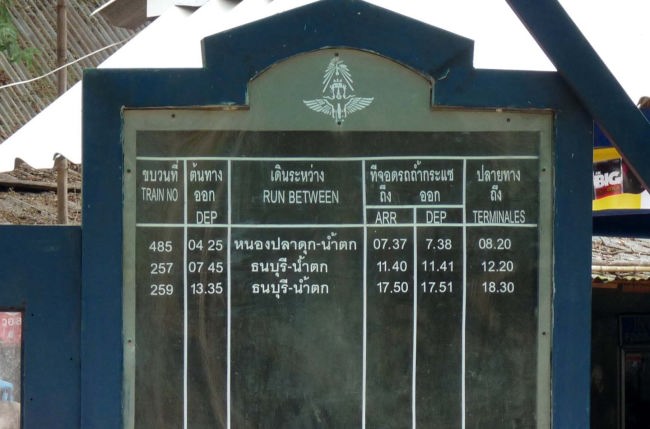 ขบวนที่ ต้นทาง เดินระหว่าง ที่จอดรถถ้ำกระแซ ปลายทาง
TRAIN NO ออก RUN BETWEEN ถึง ออก ถึง
DEP ARR DEP TERMINALES
485 04.25 หนองปลาดุก-น้ำตก 07.37 7.38 08.20
257 07.45 ธนบุรี-น้ำตก 11.40 11.41 12.20
259 13.35 ธนบุรี-น้ำตก 17.50 17.51 18.30
BIG